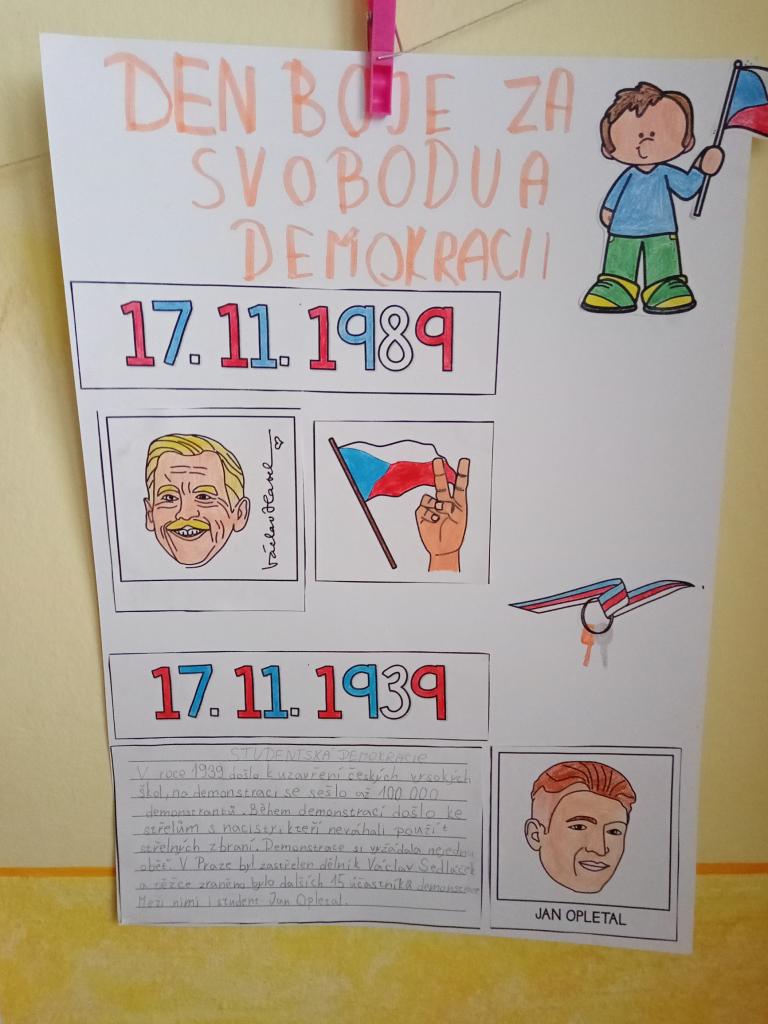 DEN BOJE ZA
SVOBODU A
DEMOKRACII
17. 11. 1989
Václav Havel
17. 11. 1939
STUDENTSKÁ DEMOKRACIE
V roce 1939 došlo k uzavření českých vysokých
škol, na demonstraci se sešlo až 100 000
demonstrantů. Během demonstrací došlo ke
střelům s nacisty, kteří neváhali použít
střelných zbraní. Demonstrace si vyžádala nejednu
oběť. V Praze byl zastřelen dělník Václav Sedláček
a těžce zraněno bylo dalších 15 účastníků demonstrace
Mezi nimi i student Jan Opletal.
JAN OPLETAL